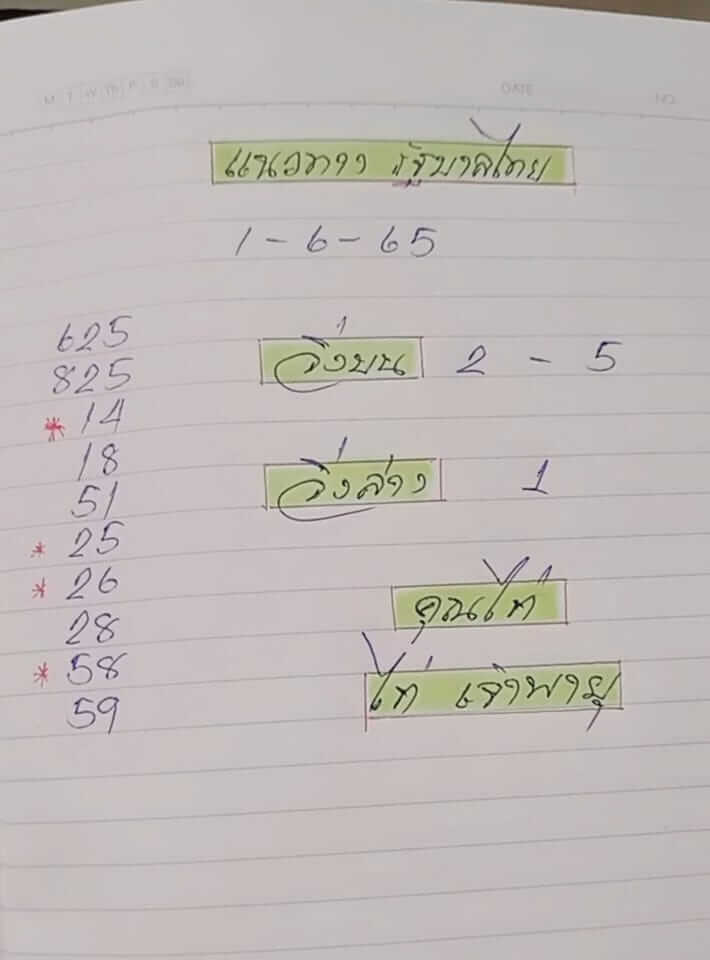 M T W Th F S Su
DATE
NO.
แนวทาง รัฐบาลไทย
1 - 6 - 65
625
825
* 14
18
51
* 25
* 26
28
* 58
59
วิ่งบน 2 - 5
วิ่งล่าง 1
คุณไก่
ไก่ เจ้าพายุ